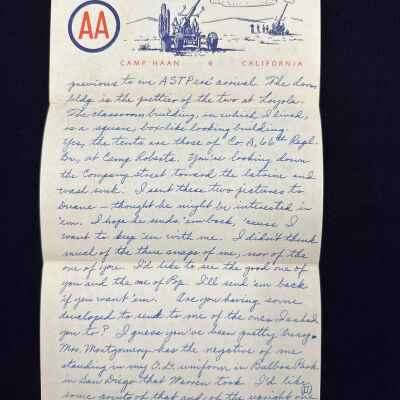 AA
CAMP HAAN & CALIFORNIA
previous to we ASTPers' arrival. The dorm
bldg. is the prettier of the two at Loyola.
The classroom building, in which I lived,
is a square, box-like looking building.
Yes, the tents are those of Co. A, 66th Regt.
Bn., at Camp Roberts. You're looking down
the Company street toward the latrine and
wash sink. I sent these two pictures to
Duane – thought he might be interested in
'em. I hope he sends 'em back, 'cause I
want to keep 'em with me. I didn't think
much of the three snaps of me, nor of the
one of you. I'd like to see the good one of
you and the one of Pop. I'll send 'em back
if you want 'em. Are you having some
developed to send to me of the ones I asked
you to? I guess you've been pretty busy.
Mrs. Montgomery has the negative of me
standing in my O.D. uniform in Balboa Park
in San Diego that Warren took. I'd like
some prints of that and of the upright one